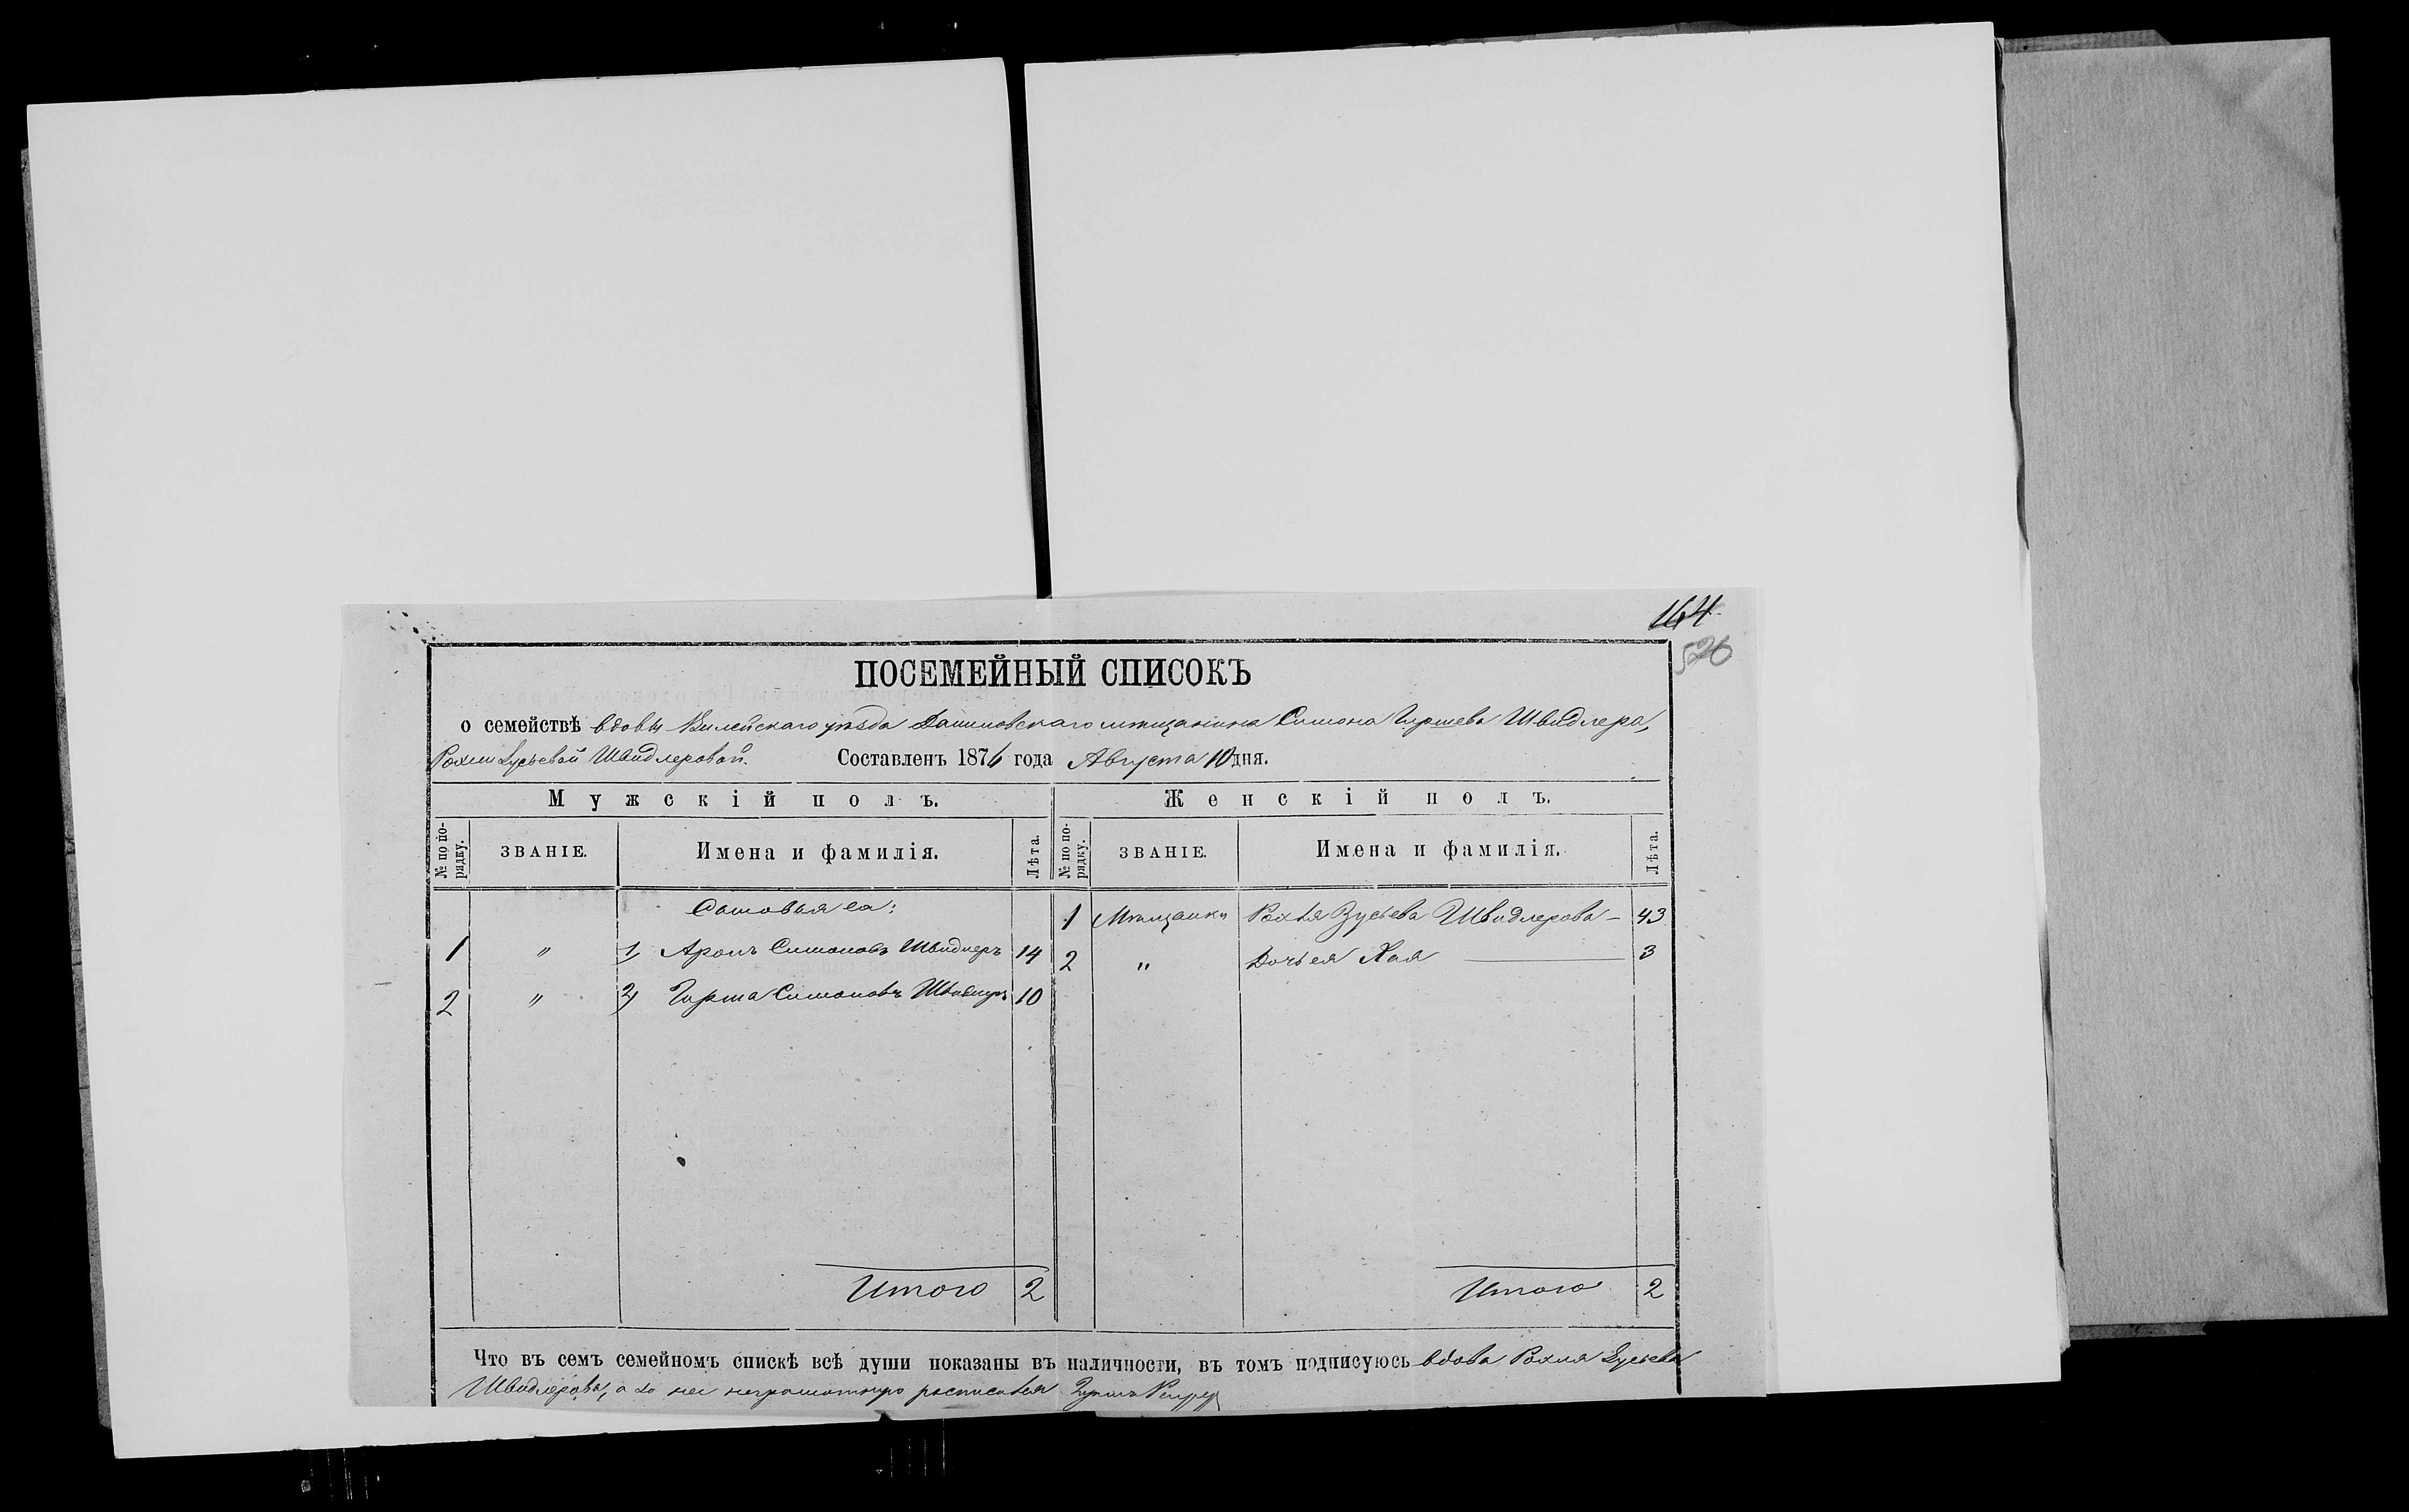 164.
526
ПОСЕМЕЙНЫЙ СПИСОКЪ
о семействѣ вдовы Вилейскаго уѣзда мѣщанина Симона Гиршева Швидлера,
Рохли Зусьевой Швидлеровой. Составленъ 1876 года Августа 10 дня.
Мужскій полъ. Женскій полъ.
№ по порядку. ЗВАНІЕ. Имена и фамилія. Лѣта. № по порядку. ЗВАНІЕ. Имена и фамилія. Лѣта.
Сыновья ея: 1 Мѣщанки Рохля Зусьева Швидлерова – 43
1 " 1, Аронъ Симоновъ Швидлеръ 14 2 " Дочь ея Хая — 3
2 " 2, Гирша Симоновъ Швидлеръ 10
Итого 2 Итого 2
Что въ семъ семейномъ спискѣ всѣ души показаны въ наличности, въ томъ подписуюсь вдова Рохля Зусьева
Швидлерова, а за нее неграмотную росписался